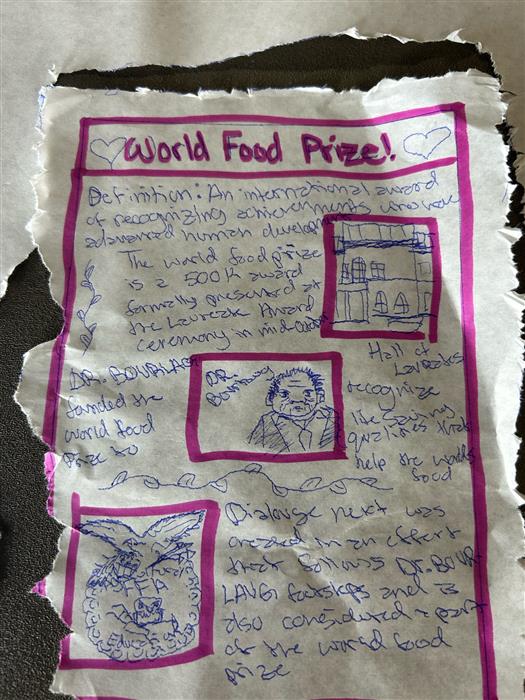 World Food Prize!
Definition: An international award
of recognizing achievements who have
advanced human development
The world food prize
is a 500K award
formally presented at
the Laureate Award
ceremony in mid October
Hall of
Laureates
DR. BOURLAUG
founded the
world food
Prize to
DR.
recognize
life saving
qualities that
help the worlds
food
Dialouge next was
created in an effort
that follows DR. BOUR-
LAUG footsteps and is
also considured a part
of the world food
prize
FFA